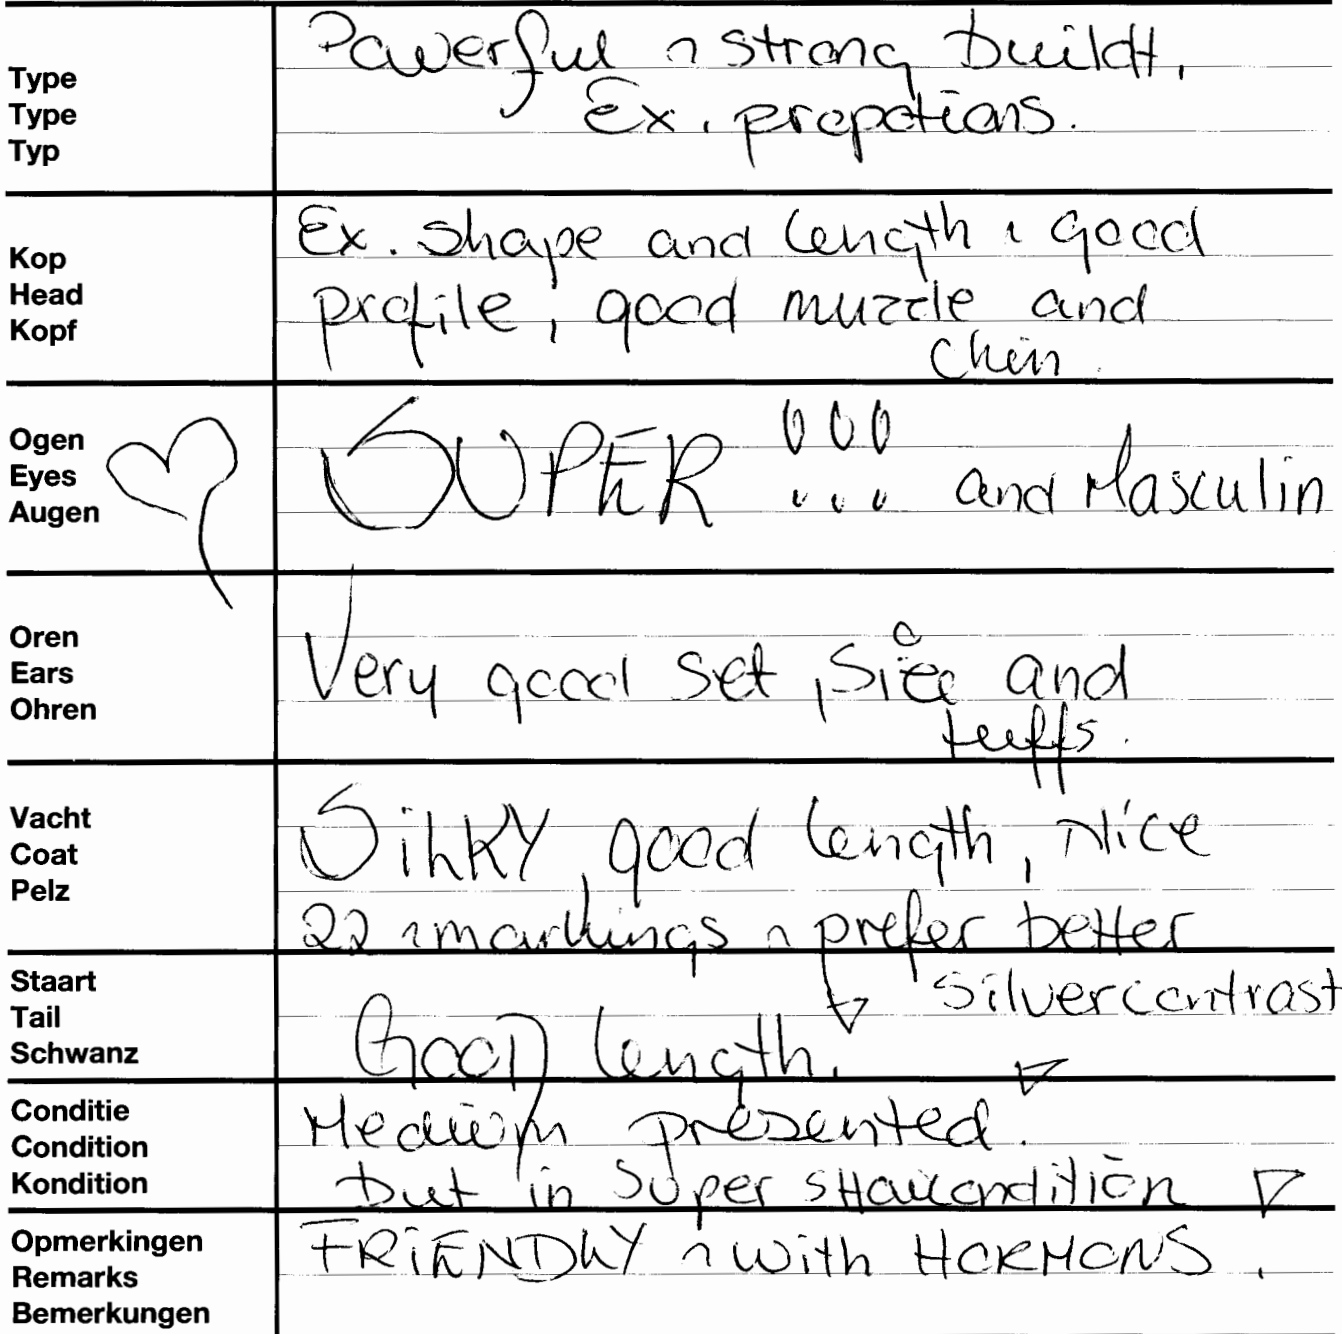 Type
Type
Typ
Powerful, strong buildt,
Ex. propotions.
Kop
Head
Kopf
Ex. shape and length, good
profile, good muzzle and
chin.
Ogen
Eyes
Augen
SUPER !!! and Masculin
Oren
Ears
Ohren
Very good set, size and
tuffs.
Vacht
Coat
Pelz
SiLKY, good length, Nice
22, markings, prefer better
silvercontrast
Staart
Tail
Schwanz
GooD length.
Conditie
Condition
Kondition
Medium presented.
but in super condition
Opmerkingen
Remarks
Bemerkungen
FRiENDLY, with HORMONS.